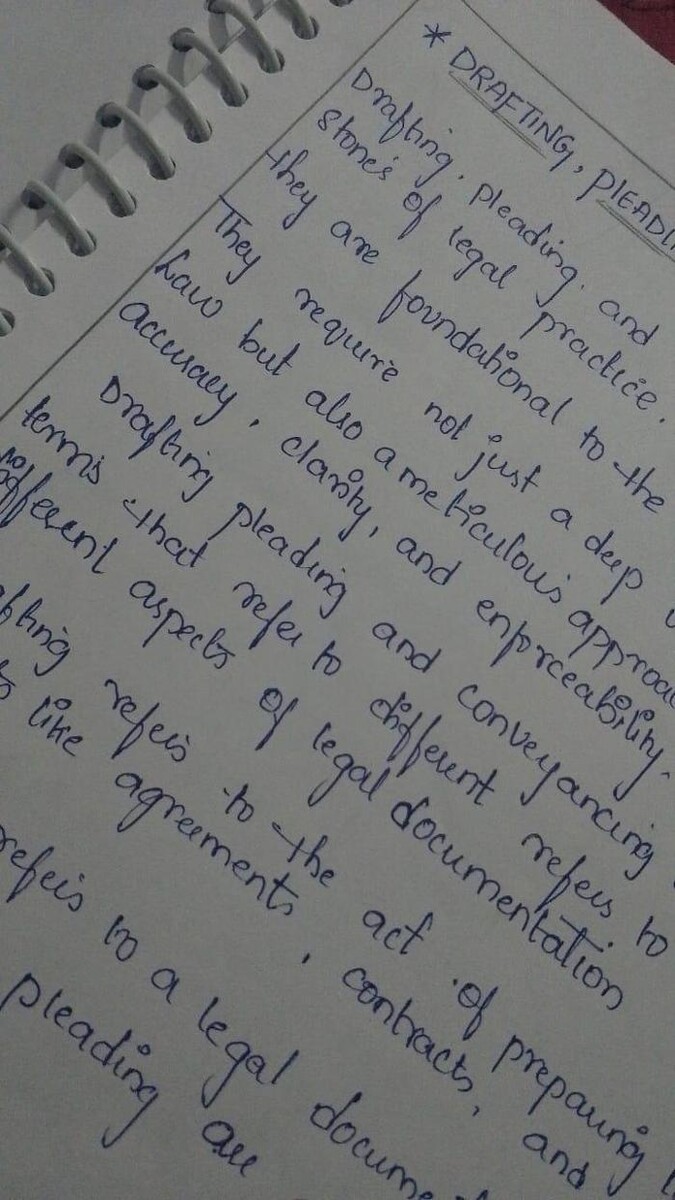 * DRAFTING, PLEADI
Drafting, pleading, and
stones of legal practice.
they are foundational to the
They require not just a deep
Law but also a meticulous approa
accuracy, clarity, and enforceability.
Drafting pleading and conveyancing
terms that refer to different refers to
different aspects of legal documentation
afting refers to the act of preparing
like agreements, contracts, and
refers to a legal docume
pleading are